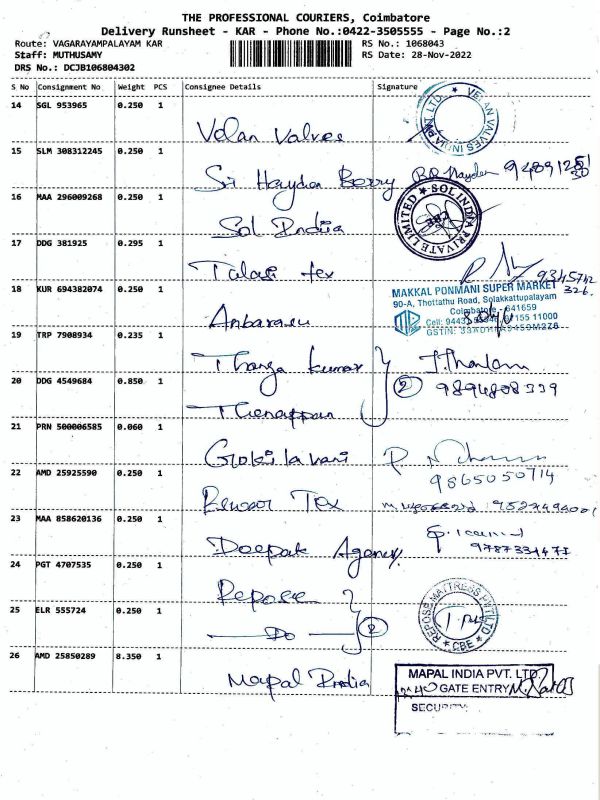 THE PROFESSIONAL COURIERS, Coimbatore
Delivery Runsheet - KAR - Phone No.:0422-3505555 - Page No.:2
Route: VAGARAYAMPALAYAM KAR
RS No.: 1068043
Staff: MUTHUSAMY
RS Date: 28-Nov-2022
DRS No.: DCJB106804302
S No Consignment No Weight PCS Consignee Details Signature
14 SGL 953965 0.250 1
Velan Valves
VELAN VALVES INDIA PVT. LTD.
15 SLM 308312245 0.250 1
Sri Hayden Berry
16 MAA 296009268 0.250 1
Sol India
SOL INDIA PRIVATE LIMITED
CBE
17 DDG 381925 0.295 1
Talasi tex
9345742
326.
18 KUR 694382074 0.250 1
Anbarasu
MAKKAL PONMANI SUPER MARKET
90-A, Thottathu Road, Solakkattupalayam
Coimbatore - 641659
19 TRP 7908934 0.235 1
Thanga Kumar
20 DDG 4549684 0.850 1
Thenappan
2
9894808339
21 PRN 500006585 0.060 1
Gokilavani
9865050714
22 AMD 25925590 0.250 1
Tex
23 MAA 858620136 0.250 1
Deepak Agency
9787331477
24 PGT 4707535 0.250 1
Repose
25 ELR 555724 0.250 1
Do
2
REPOSE MATTRESS PVT LTD
CBE
26 AMD 25850289 8.350 1
Mapal India
MAPAL INDIA PVT. LTD.
GATE ENTRY
SECURITY